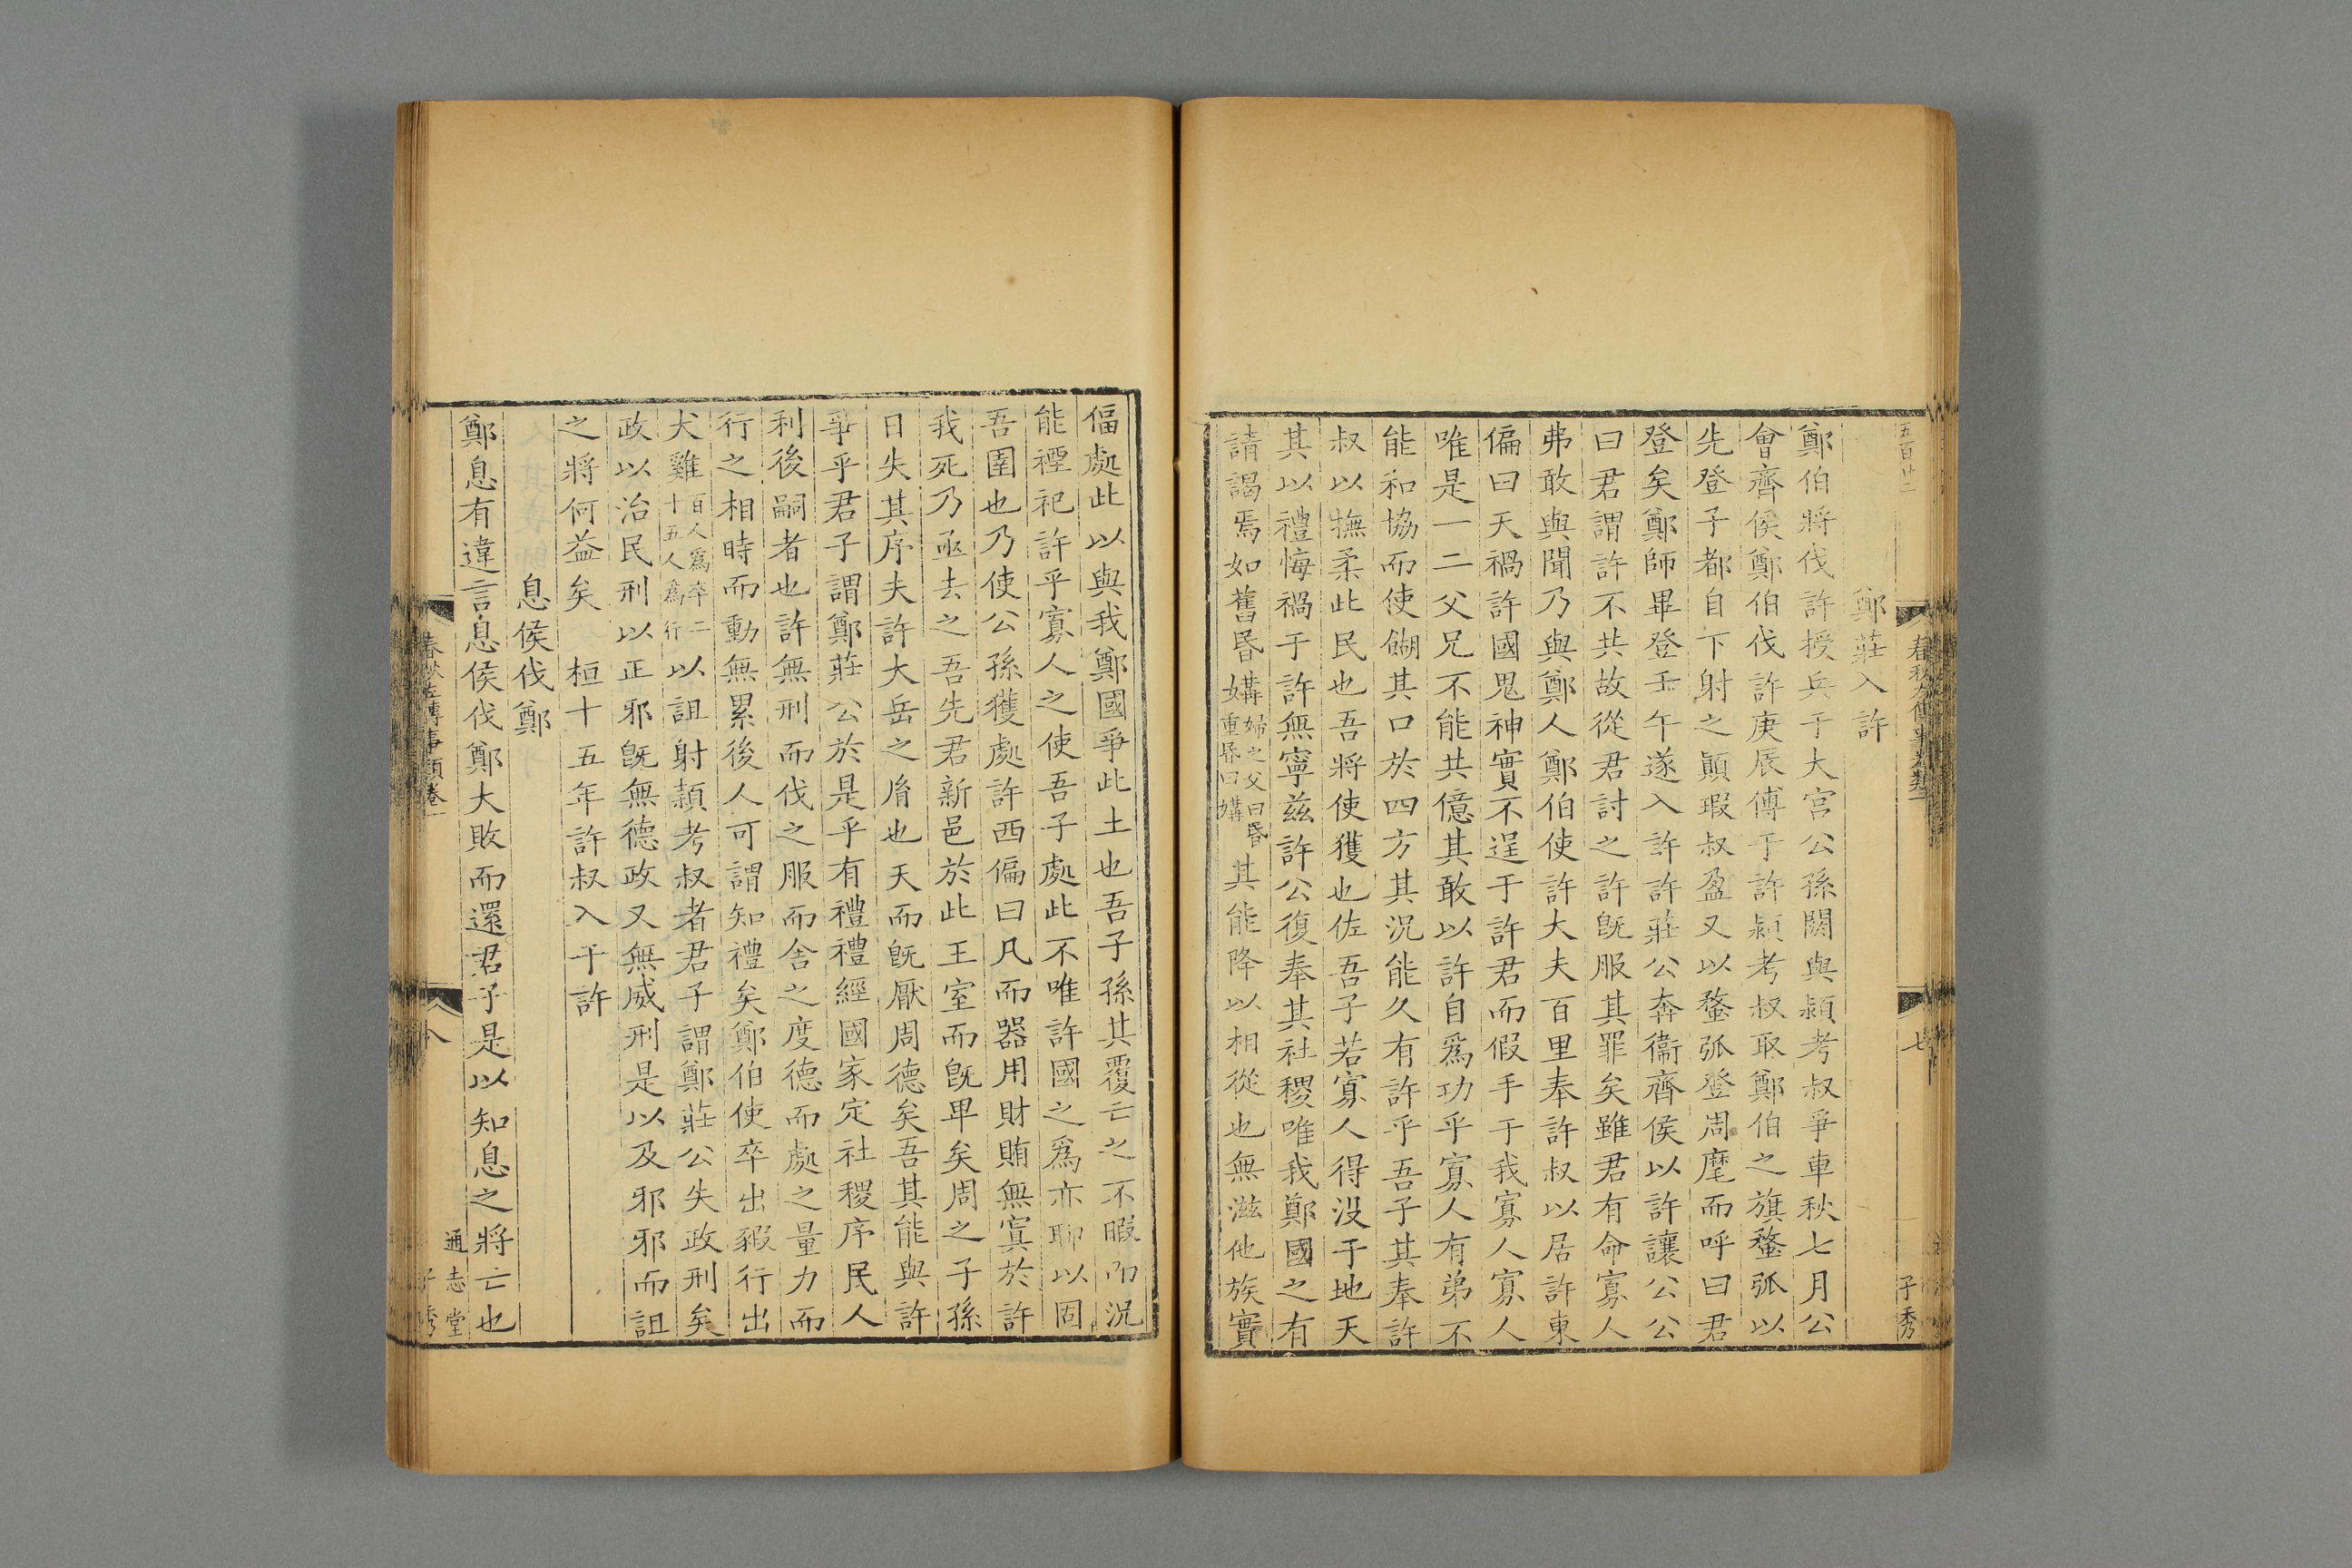 五百廿二
春秋左傳事類
七
子秀
鄭莊入許
鄭伯將伐許授兵于大宮公孫閼與潁考叔爭車秋七月公
會齊侯鄭伯伐許庚辰傅于許潁考叔取鄭伯之旗蝥弧以
先登子都自下射之顚瑕叔盈又以蝥弧登周麾而呼曰君
登矣鄭師畢登壬午遂入許許莊公奔衞齊侯以許讓公公
曰君謂許不共故從君討之許旣服其罪矣雖君有命寡人
弗敢與聞乃與鄭人鄭伯使許大夫百里奉許叔以居許東
偏曰天禍許國鬼神實不逞于許君而假手于我寡人寡人
唯是一二父兄不能共億其敢以許自爲功乎寡人有弟不
能和協而使餬其口於四方其況能久有許乎吾子其奉許
叔以撫柔此民也吾將使獲也佐吾子若寡人得没于地天
其以禮悔禍于許無寧兹許公復奉其社稷唯我鄭國之有
請謁焉如舊昏媾婦之父曰昏重昏曰媾其能降以相從也無滋他族實
偪處此以與我鄭國爭此土也吾子孫其覆亡之不暇而況
能禋祀許乎寡人之使吾子處此不唯許國之爲亦聊以固
吾圉也乃使公孫獲處許西偏曰凡而器用財賄無寘於許
我死乃亟去之吾先君新邑於此王室而旣卑矣周之子孫
日失其序夫許大岳之胤也天而旣厭周德矣吾其能與許
爭乎君子謂鄭莊公於是乎有禮禮經國家定社稷序民人
利後嗣者也許無刑而伐之服而舍之度德而處之量力而
行之相時而動無累後人可謂知禮矣鄭伯使卒出豭行出
犬雞百人爲卒二十五人爲行以詛射潁考叔者君子謂鄭莊公失政刑矣
政以治民刑以正邪旣無德政又無威刑是以及邪邪而詛
之將何益矣　桓十五年許叔入于許
息侯伐鄭
鄭息有違言息侯伐鄭鄭大敗而還君子是以知息之將亡也
春秋左傳事類卷一
八
通志堂
子秀